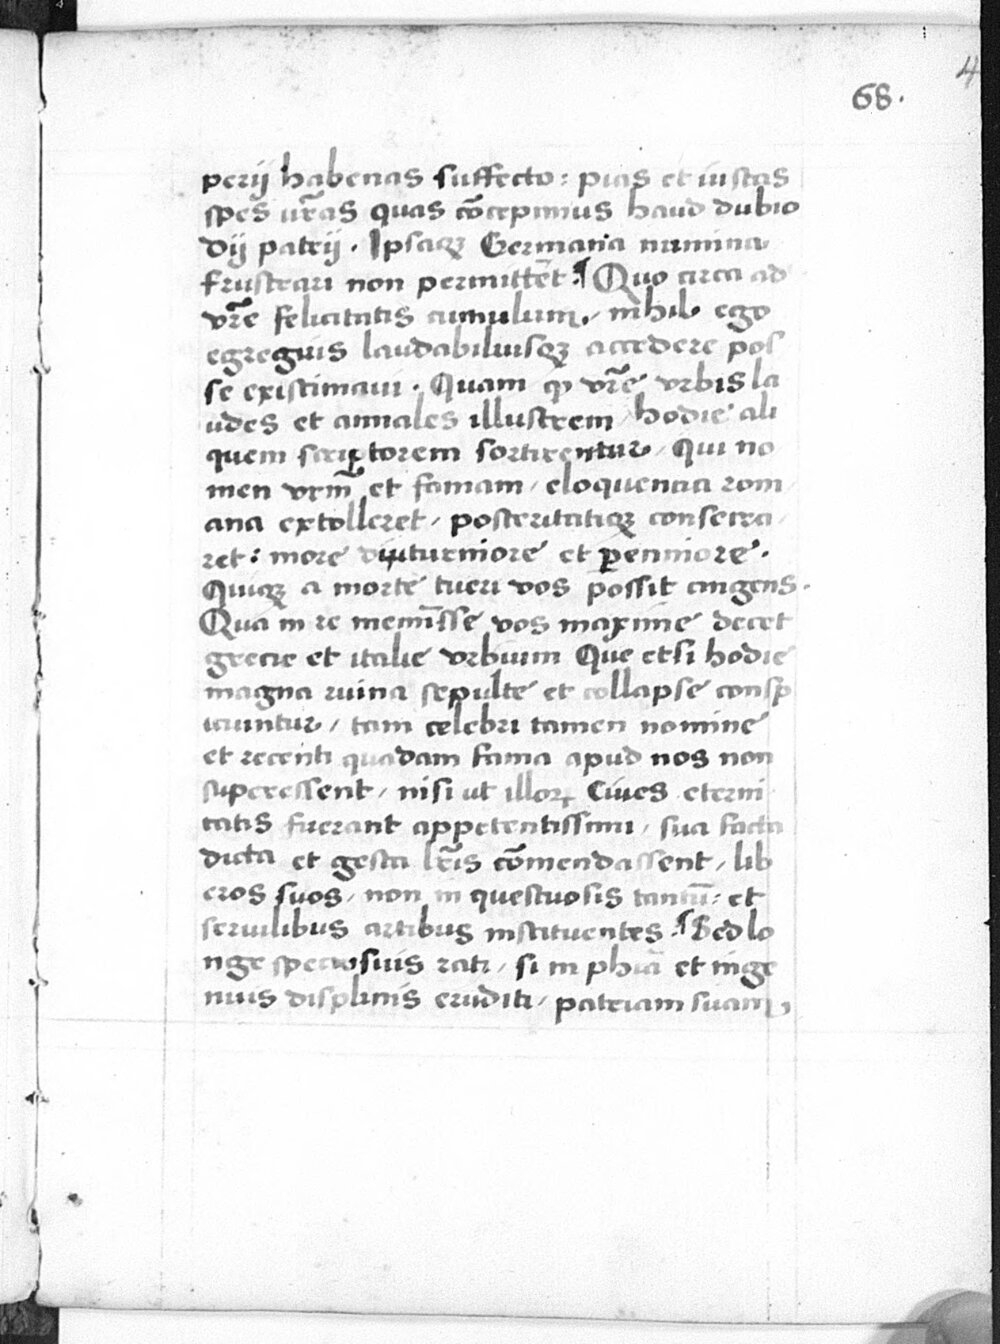 4
68.
perij habenas suffecto: pias et iustas
spes vr̄as quas cōcepimus haud dubio
Dij patrij. Ipsaqꝫ Germana numina
frustrari non permittēt: Quo circa ad
vr̄e felicitatis cumulum, nihil ego
egregius laudabiliusqꝫ accedere pos
se existimaui. Quam ꝙ vr̄e vrbis la
udes et annales illustrem / hodie ali
quem scriptorem sortirentur / Qui no
men vrm̄ et famam / eloquentia rom
ana extolleret / posteritatiqꝫ consecra
ret: more diuturniore et ꝑenniore.
Quiqꝫ a morte tueri vos possit cingens.
Qua in re memīsse vos maxime decet
grecie et italie vrbium Que etsi hodie
magna ruina sepulte et collapse consp
iciuntur / tam celebri tamen nomine
et recenti quadam fama apud nos non
superessent / nisi ut illoꝝ Ciues eterni
tatis fuerant appetentissimi / sua facta
dicta et gesta lr̄is cōmendassent / lib
eros suos / non in questuosis tantū: et
seruilibus artibus instituentes: Sed lo
nge speciosius rati / si in phīa et inge
nuis displinis eruditi / patriam suam,